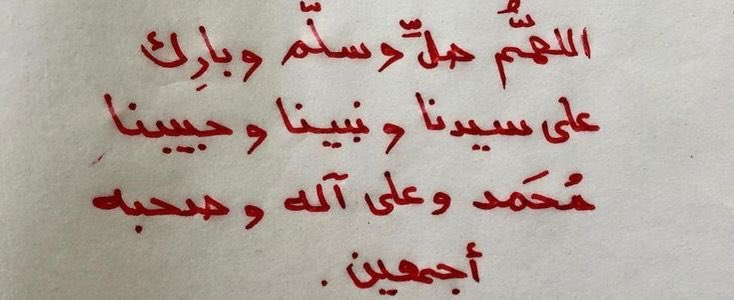 اللهمُّ صلِّ وسلّم وبارِك
على سيدنا ونبينا وحبيبنا
مُحَمد وعلى آله وصحبه
أجمعين .